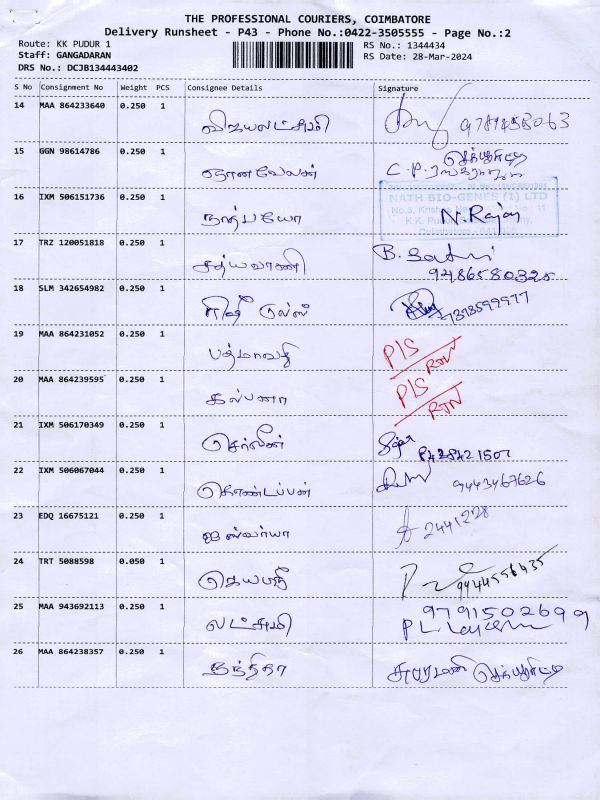 THE PROFESSIONAL COURIERS, COIMBATORE
Delivery Runsheet - P43 - Phone No.:0422-3505555 - Page No.:2
Route: KK PUDUR 1
RS No.: 1344434
Staff: GANGADARAN
RS Date: 28-Mar-2024
DRS No.: DCJB134443402
S No Consignment No Weight PCS Consignee Details Signature
14 MAA 864233640 0.250 1 விஜயலட்சுமி 9789458063
15 GGN 98614786 0.250 1 ஞானவேலன் C.P. செக்யூரிட்டி
16 IXM 506151736 0.250 1 நாத்பயோ N.Rajan
NATH BIO-GENES (I) LTD
17 TRZ 120051818 0.250 1 சத்யவாணி B. Sathi
9486580325
18 SLM 342654982 0.250 1 7373599977
19 MAA 864231052 0.250 1 பத்மாவதி P/S RTN
20 MAA 864239595 0.250 1 கல்பனா P/S RTN
21 IXM 506170349 0.250 1 செர்லின்
22 IXM 506067044 0.250 1 கொண்டப்பன் 9443467626
23 EDQ 16675121 0.250 1 ஐஸ்வர்யா 2441228
24 TRT 5088598 0.050 1 ஜெயஸ்ரீ 9444556435
25 MAA 943692113 0.250 1 லட்சுமி 9791502699
26 MAA 864238357 0.250 1 நந்திதா சுபரமணி செக்யூரிட்டி